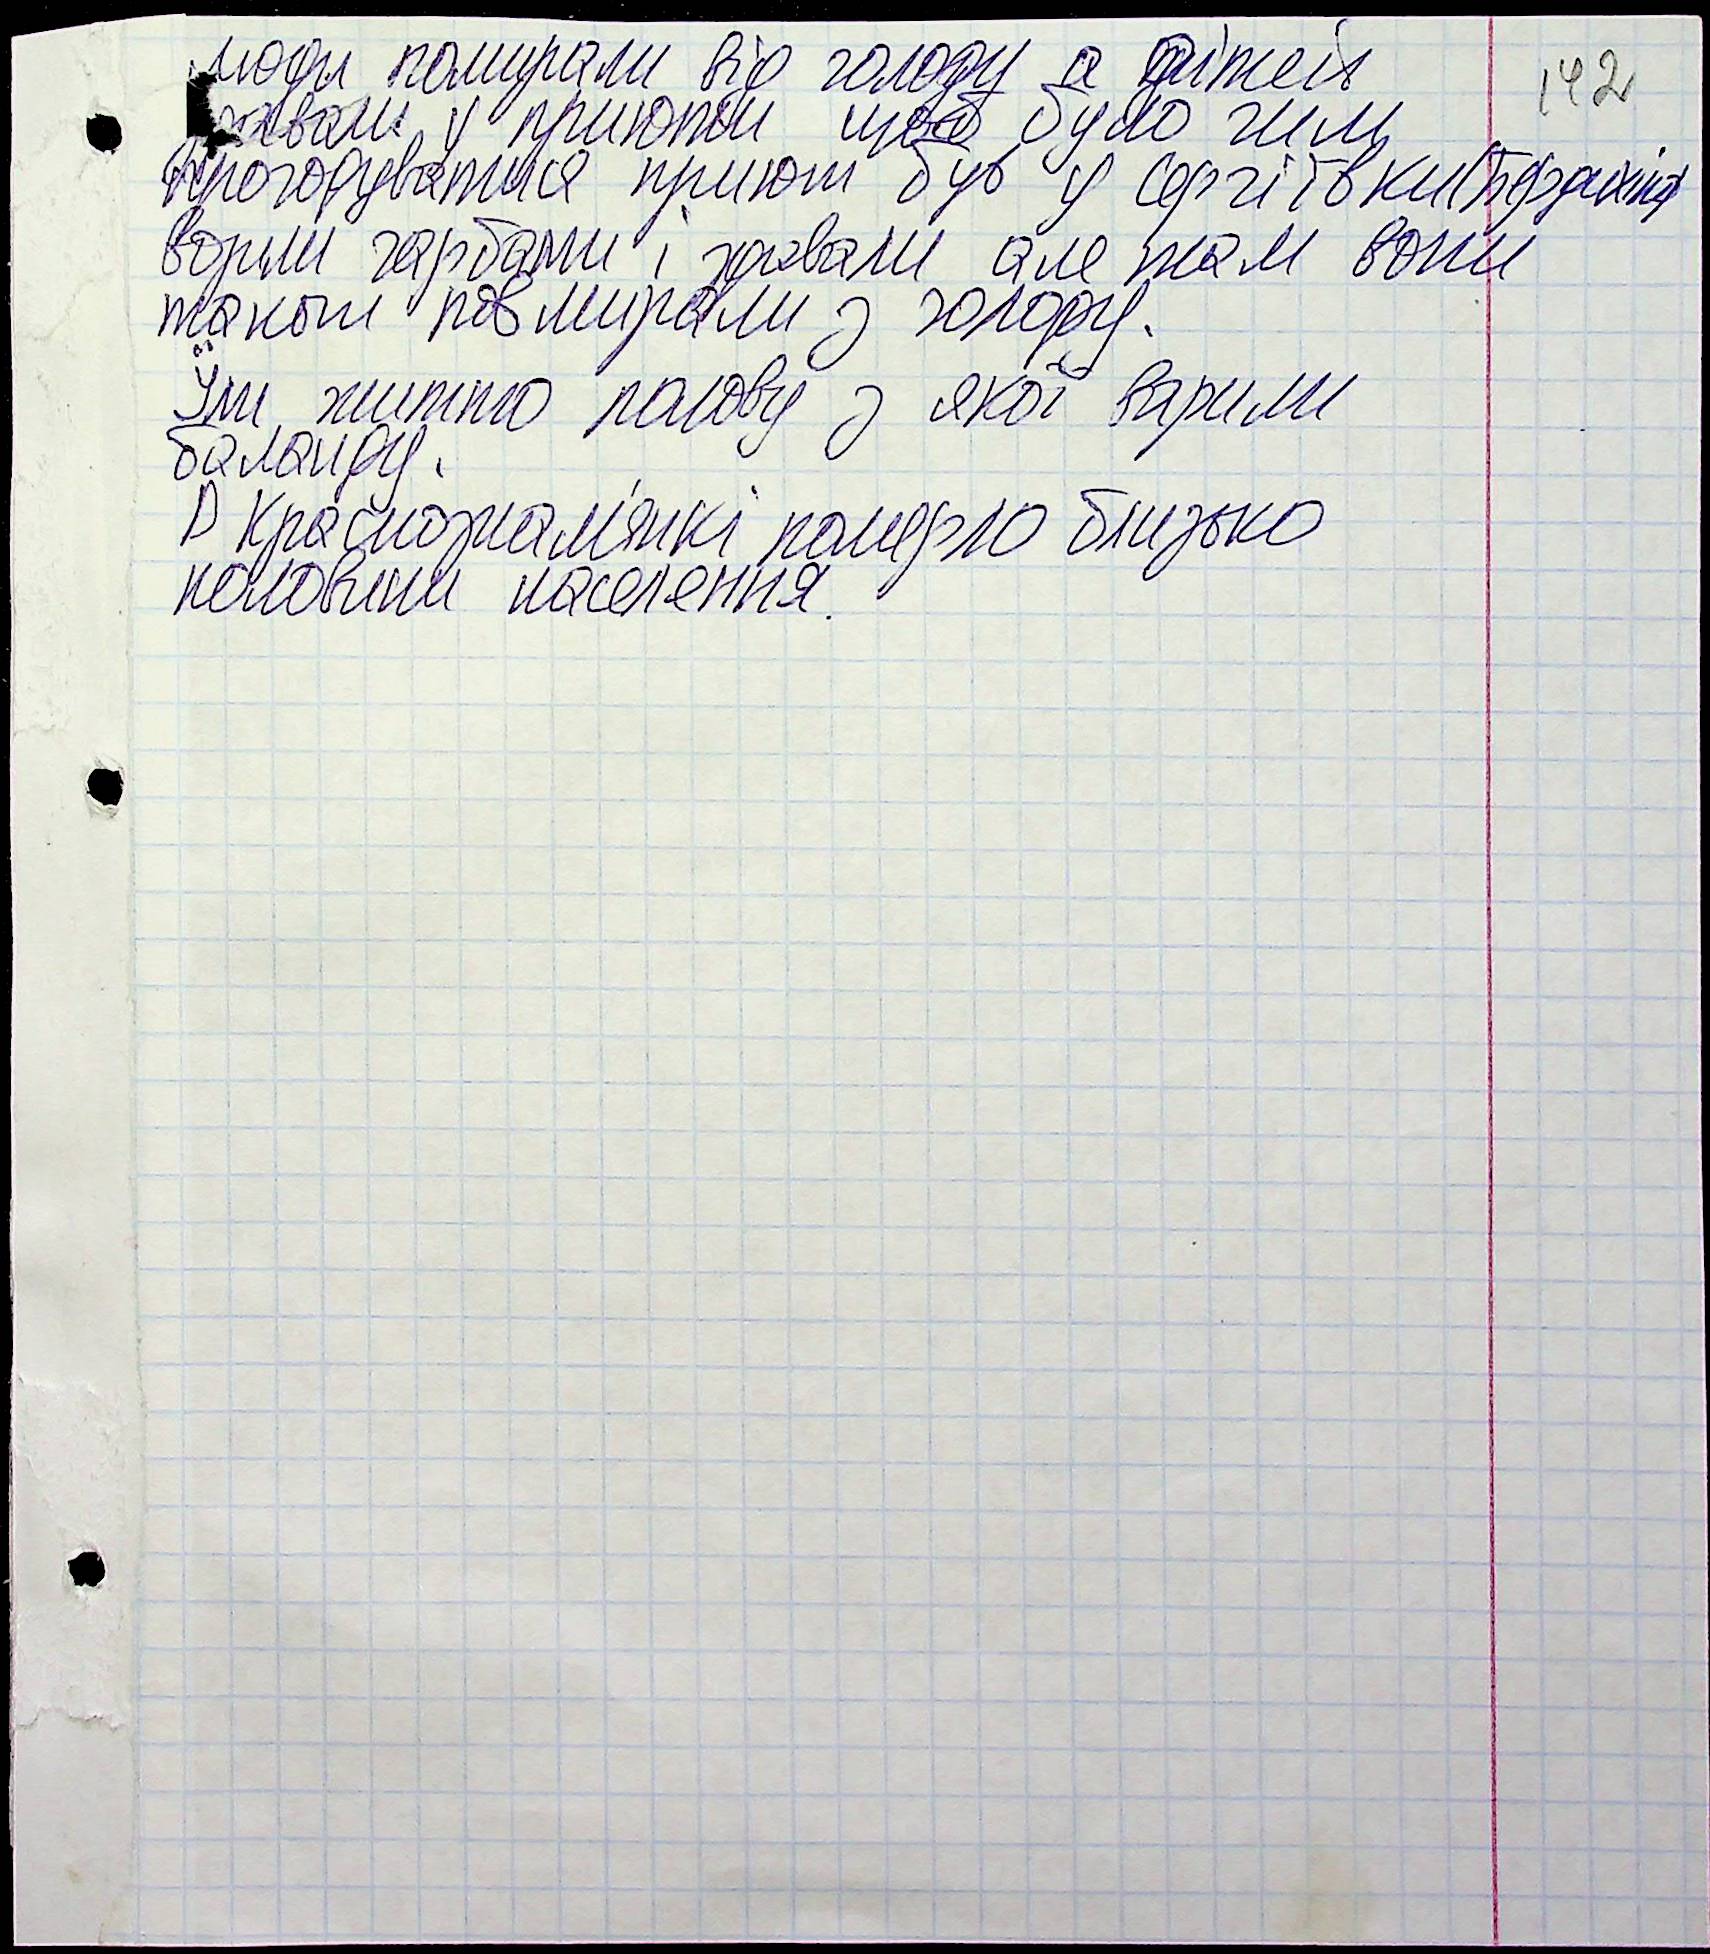 142
люди помирали від голоду а дітей
здавали у приюти щоб було чим
прогодуватися приют був у Сергіївки
возили гарбами і здавали але там вони
також повмирали з голоду.
Їли житню полову з якої варили
баланду.
В Краснознам'янкі померло близько
половини населення.